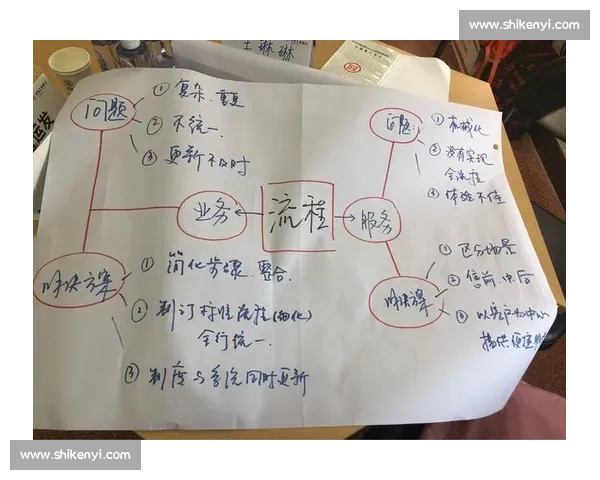 www.shikenyi.com
王琳琳
问题
① 复杂、重复
② 不统一
③ 更新不及时
业务
流程
服务
问题:
① 机械化
② 没有实现
全流程
③ 体验不佳
解决方案
① 简化步骤、整合
② 制订标准流程(细化)
全行统一
③ 制度与系统同时更新
解决方案
① 区分场景
② 售前、中、后
③ 以客户为中心
提供便捷
www.shikenyi.com